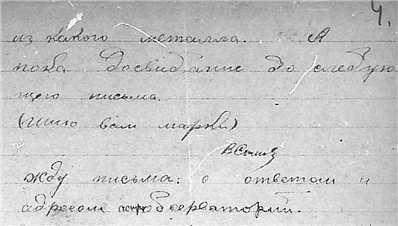 4.
из какого металла. А
пока досвидание до следую
щего письма.
(шлю вам марки)
жду письма: с ответом и
адресом обсерватории.